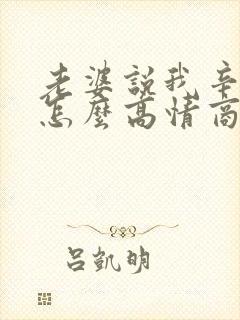 老婆說我辛
怎麼高情商
呂凱明